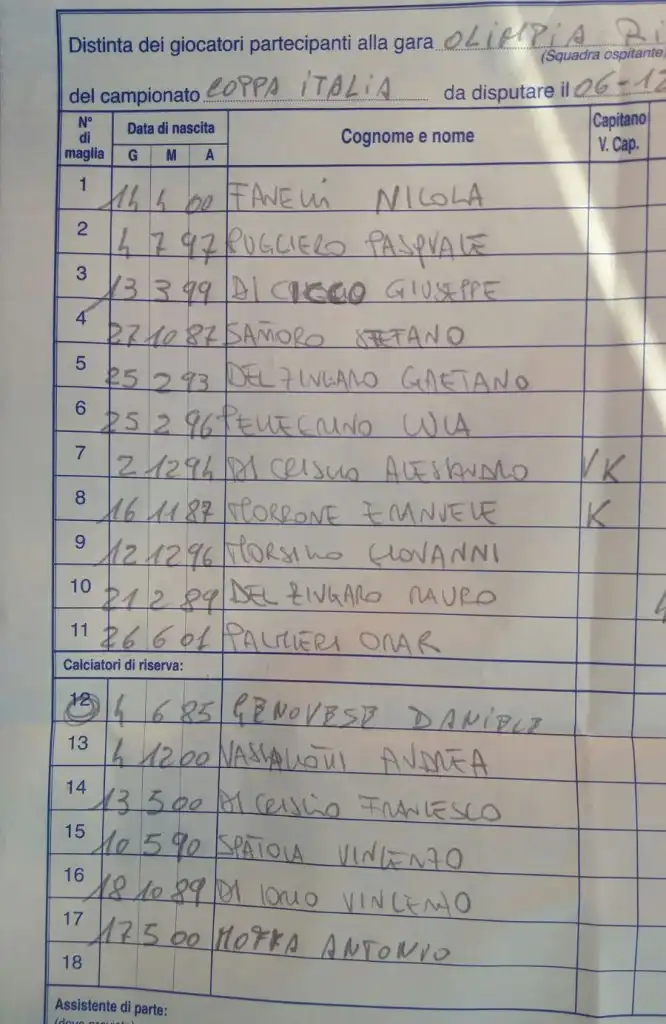 Distinta dei giocatori partecipanti alla gara OLIMPIA
(Squadra ospitante)
del campionato COPPA ITALIA da disputare il 06-12
N° di maglia Data di nascita G M A Cognome e nome Capitano V. Cap.
1 14 4 00 FANELLI NICOLA
2 4 7 97 PUGLIERO PASQUALE
3 13 3 99 DI CICCO GIUSEPPE
4 27 10 87 SANTORO STEFANO
5 25 2 93 DEL ZINGARO GAETANO
6 25 2 96 PELLEGRINO LUCA
7 2 12 94 ALESSANDRO VK
8 16 11 87 MORRONE EMANUELE K
9 12 12 96 GIOVANNI
10 21 2 89 DEL ZINGARO MAURO
11 26 6 01 PALMIERI OMAR
Calciatori di riserva:
12 4 6 85 GENOVESE DANIELE
13 4 12 00 ANDREA
14 13 5 00 FRANCESCO
15 10 5 90 SPATOLA VINCENZO
16 18 10 89 DI IORIO VINCENZO
17 17 5 00 ANTONIO
18
Assistente di parte: